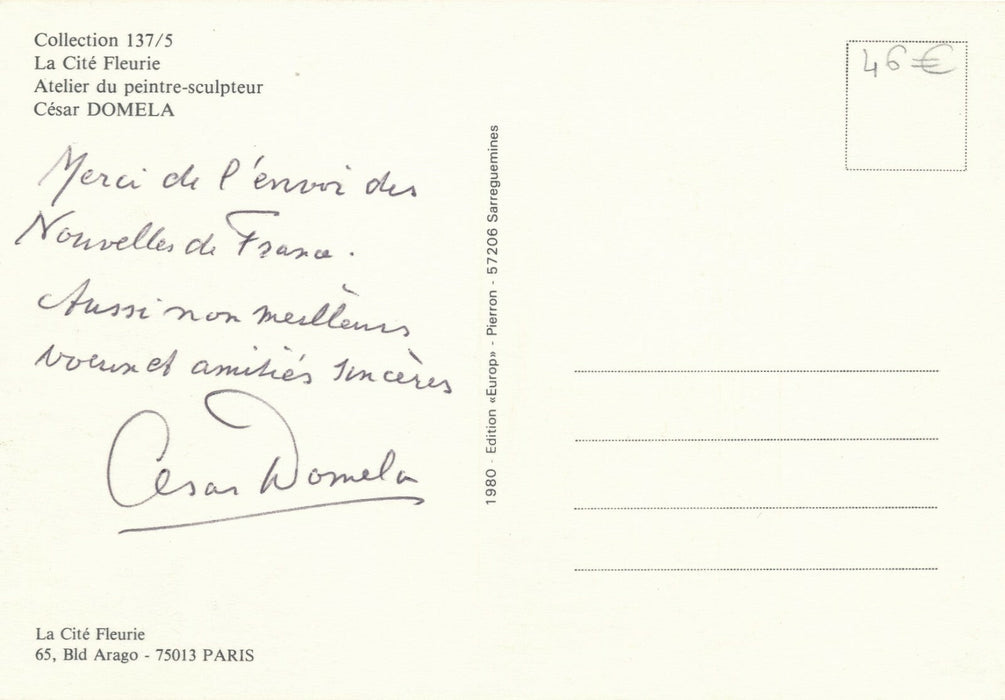 Collection 137/5
La Cité Fleurie
Atelier du peintre-sculpteur
César DOMELA
Merci de l'envoi des
Nouvelles de France.
Aussi non meilleurs
voeux et amitiés sincères
César Domela
La Cité Fleurie
65, Bld Arago - 75013 PARIS
1980 - Edition «Europ» - Pierron - 57206 Sarreguemines
46 €